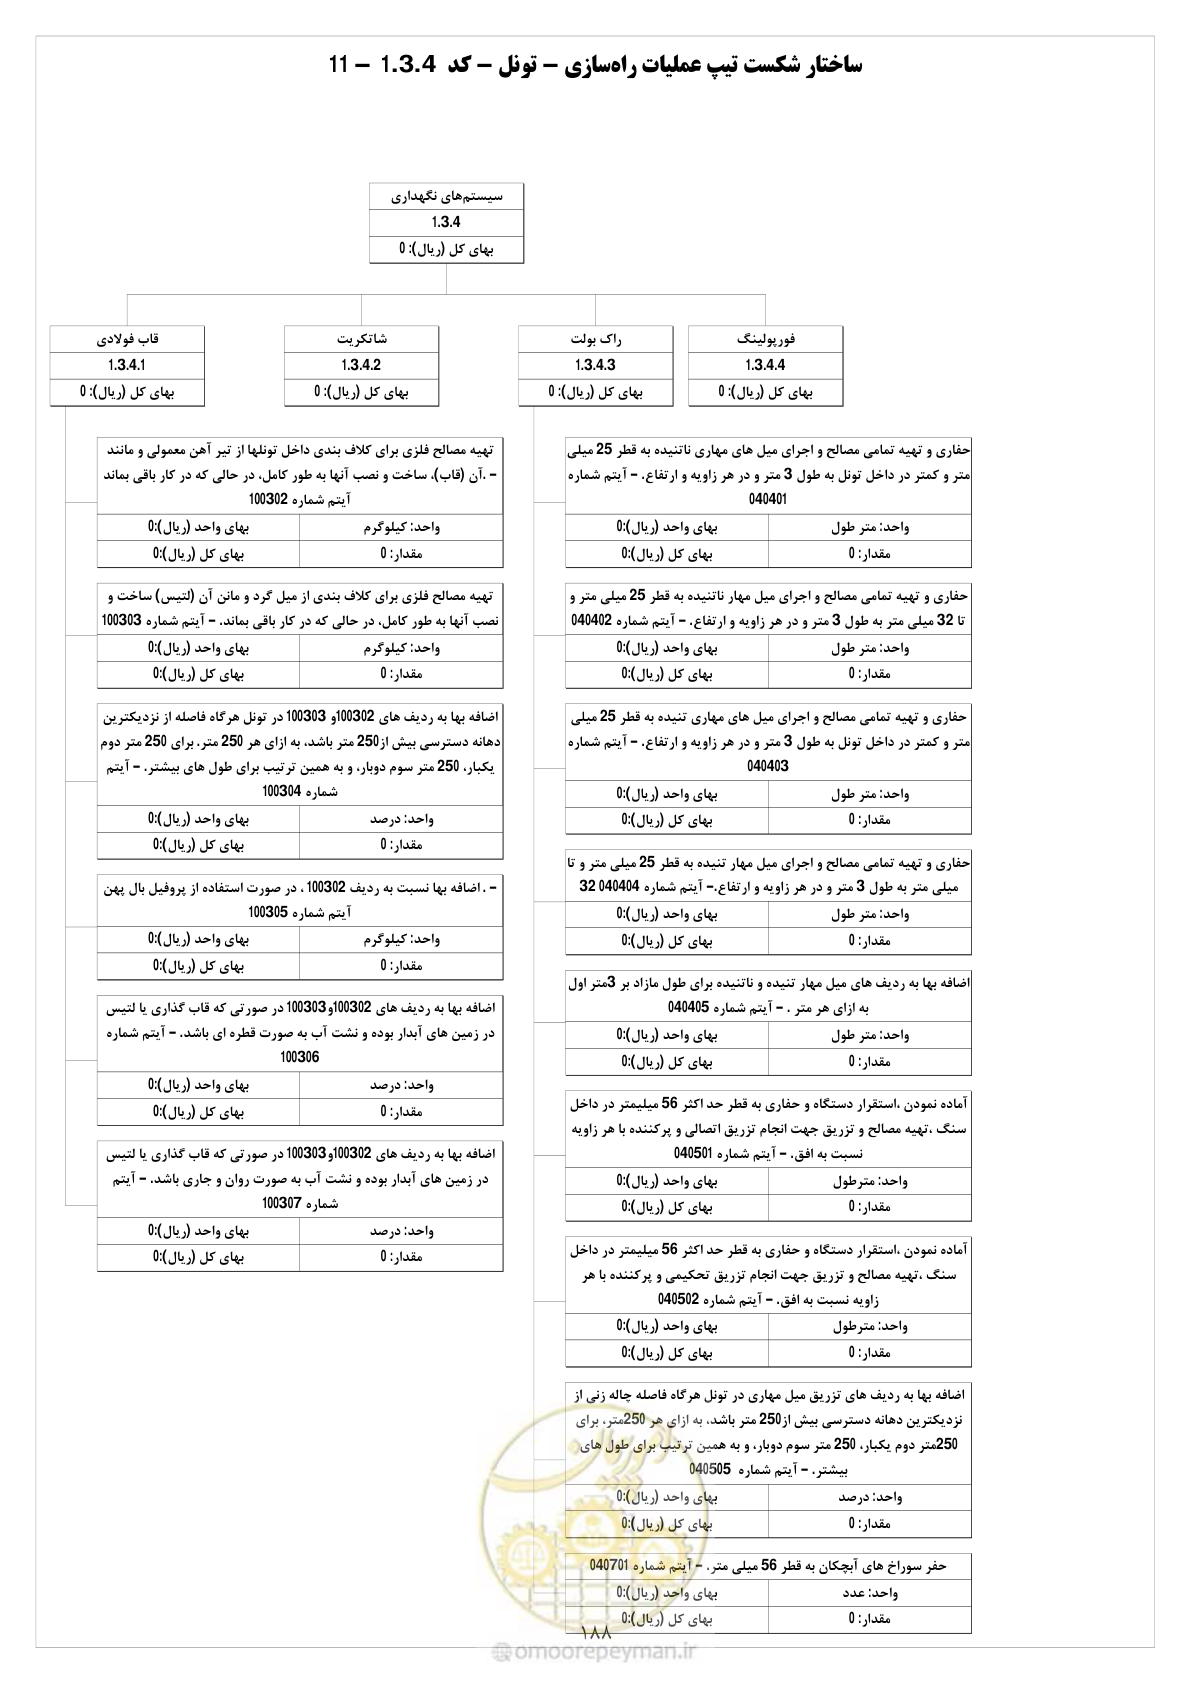 ساختار شکست تیپ عملیات راه‌سازی – تونل – کد 1.3.4 – 11
سیستم‌های نگهداری
1.3.4
بهای کل (ریال): 0
فورپولینگ
1.3.4.4
بهای کل (ریال): 0
راک بولت
1.3.4.3
بهای کل (ریال): 0
شاتکریت
1.3.4.2
بهای کل (ریال): 0
قاب فولادی
1.3.4.1
بهای کل (ریال): 0
حفاری و تهیه تمامی مصالح و اجرای میل های مهاری ناتنیده به قطر 25 میلی
متر و کمتر در داخل تونل به طول 3 متر و در هر زاویه و ارتفاع. – آیتم شماره
040401
واحد: متر طول
بهای واحد (ریال):0
مقدار: 0
بهای کل (ریال):0
حفاری و تهیه تمامی مصالح و اجرای میل مهار ناتنیده به قطر 25 میلی متر و
تا 32 میلی متر به طول 3 متر و در هر زاویه و ارتفاع. – آیتم شماره 040402
واحد: متر طول
بهای واحد (ریال):0
مقدار: 0
بهای کل (ریال):0
حفاری و تهیه تمامی مصالح و اجرای میل های مهاری تنیده به قطر 25 میلی
متر و کمتر در داخل تونل به طول 3 متر و در هر زاویه و ارتفاع. – آیتم شماره
040403
واحد: متر طول
بهای واحد (ریال):0
مقدار: 0
بهای کل (ریال):0
حفاری و تهیه تمامی مصالح و اجرای میل مهار تنیده به قطر 25 میلی متر و تا
میلی متر به طول 3 متر و در هر زاویه و ارتفاع.– آیتم شماره 040404 32
واحد: متر طول
بهای واحد (ریال):0
مقدار: 0
بهای کل (ریال):0
اضافه بها به ردیف های میل مهار تنیده و ناتنیده برای طول مازاد بر 3متر اول
به ازای هر متر . – آیتم شماره 040405
واحد: متر طول
بهای واحد (ریال):0
مقدار: 0
بهای کل (ریال):0
آماده نمودن ،استقرار دستگاه و حفاری به قطر حد اکثر 56 میلیمتر در داخل
سنگ ،تهیه مصالح و تزریق جهت انجام تزریق اتصالی و پرکننده با هر زاویه
نسبت به افق. – آیتم شماره 040501
واحد: مترطول
بهای واحد (ریال):0
مقدار: 0
بهای کل (ریال):0
آماده نمودن ،استقرار دستگاه و حفاری به قطر حد اکثر 56 میلیمتر در داخل
سنگ ،تهیه مصالح و تزریق جهت انجام تزریق تحکیمی و پرکننده با هر
زاویه نسبت به افق. – آیتم شماره 040502
واحد: مترطول
بهای واحد (ریال):0
مقدار: 0
بهای کل (ریال):0
اضافه بها به ردیف های تزریق میل مهاری در تونل هرگاه فاصله چاله زنی از
نزدیکترین دهانه دسترسی بیش از250 متر باشد، به ازای هر 250متر، برای
250متر دوم یکبار، 250 متر سوم دوبار، و به همین ترتیب برای طول های
بیشتر. – آیتم شماره 040505
واحد: درصد
بهای واحد (ریال):0
مقدار: 0
بهای کل (ریال):0
حفر سوراخ های آبچکان به قطر 56 میلی متر. – آیتم شماره 040701
واحد: عدد
بهای واحد (ریال):0
مقدار: 0
بهای کل (ریال):0
تهیه مصالح فلزی برای کلاف بندی داخل تونلها از تیر آهن معمولی و مانند
– .آن (قاب)، ساخت و نصب آنها به طور کامل، در حالی که در کار باقی بماند
آیتم شماره 100302
واحد: کیلوگرم
بهای واحد (ریال):0
مقدار: 0
بهای کل (ریال):0
تهیه مصالح فلزی برای کلاف بندی از میل گرد و مانن آن (لتیس) ساخت و
نصب آنها به طور کامل، در حالی که در کار باقی بماند. – آیتم شماره 100303
واحد: کیلوگرم
بهای واحد (ریال):0
مقدار: 0
بهای کل (ریال):0
اضافه بها به ردیف های 100302و 100303 در تونل هرگاه فاصله از نزدیکترین
دهانه دسترسی بیش از250 متر باشد، به ازای هر 250 متر. برای 250 متر دوم
یکبار، 250 متر سوم دوبار، و به همین ترتیب برای طول های بیشتر. – آیتم
شماره 100304
واحد: درصد
بهای واحد (ریال):0
مقدار: 0
بهای کل (ریال):0
– . اضافه بها نسبت به ردیف 100302 ، در صورت استفاده از پروفیل بال پهن
آیتم شماره 100305
واحد: کیلوگرم
بهای واحد (ریال):0
مقدار: 0
بهای کل (ریال):0
اضافه بها به ردیف های 100302و100303 در صورتی که قاب گذاری یا لتیس
در زمین های آبدار بوده و نشت آب به صورت قطره ای باشد. – آیتم شماره
100306
واحد: درصد
بهای واحد (ریال):0
مقدار: 0
بهای کل (ریال):0
اضافه بها به ردیف های 100302و100303 در صورتی که قاب گذاری یا لتیس
در زمین های آبدار بوده و نشت آب به صورت روان و جاری باشد. – آیتم
شماره 100307
واحد: درصد
بهای واحد (ریال):0
مقدار: 0
بهای کل (ریال):0
امور پیمان
۱۸۸
@omoorepeyman.ir